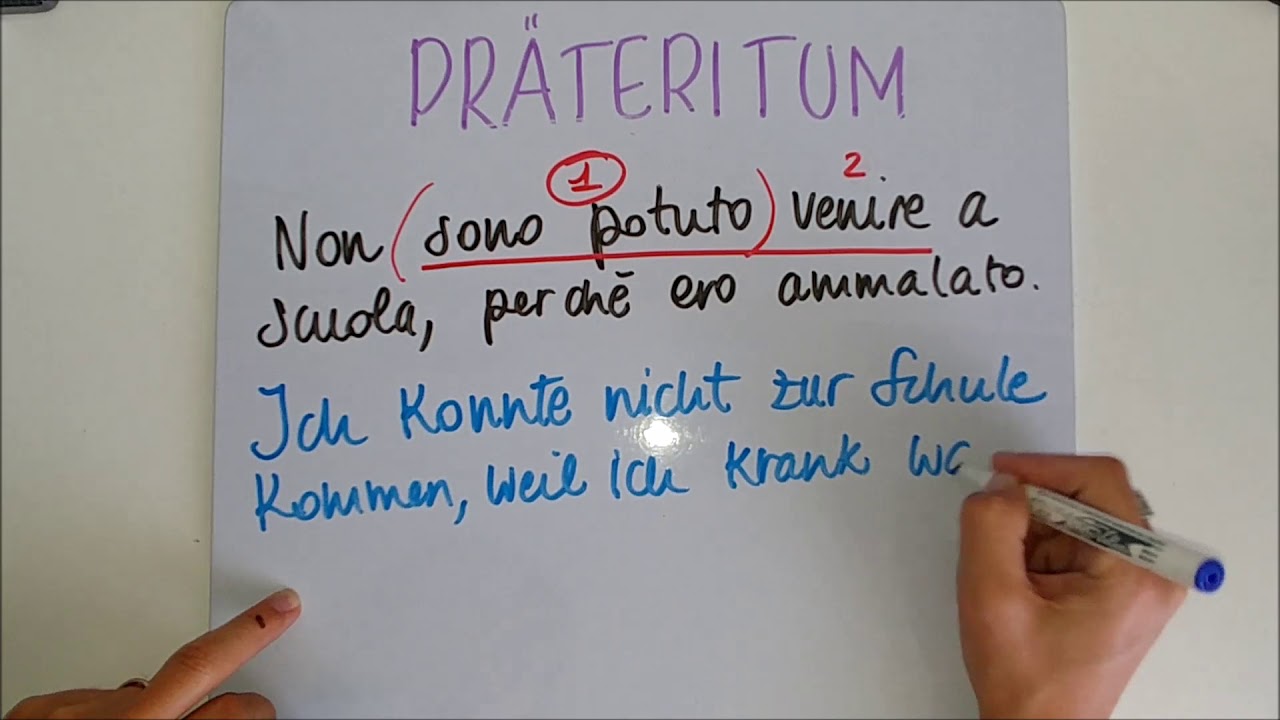 PRÄTERITUM
1 2.
Non (sono potuto) venire a
scuola, perchē ero ammalato.
Ich konnte nicht zur Schule
kommen, weil ich krank wa